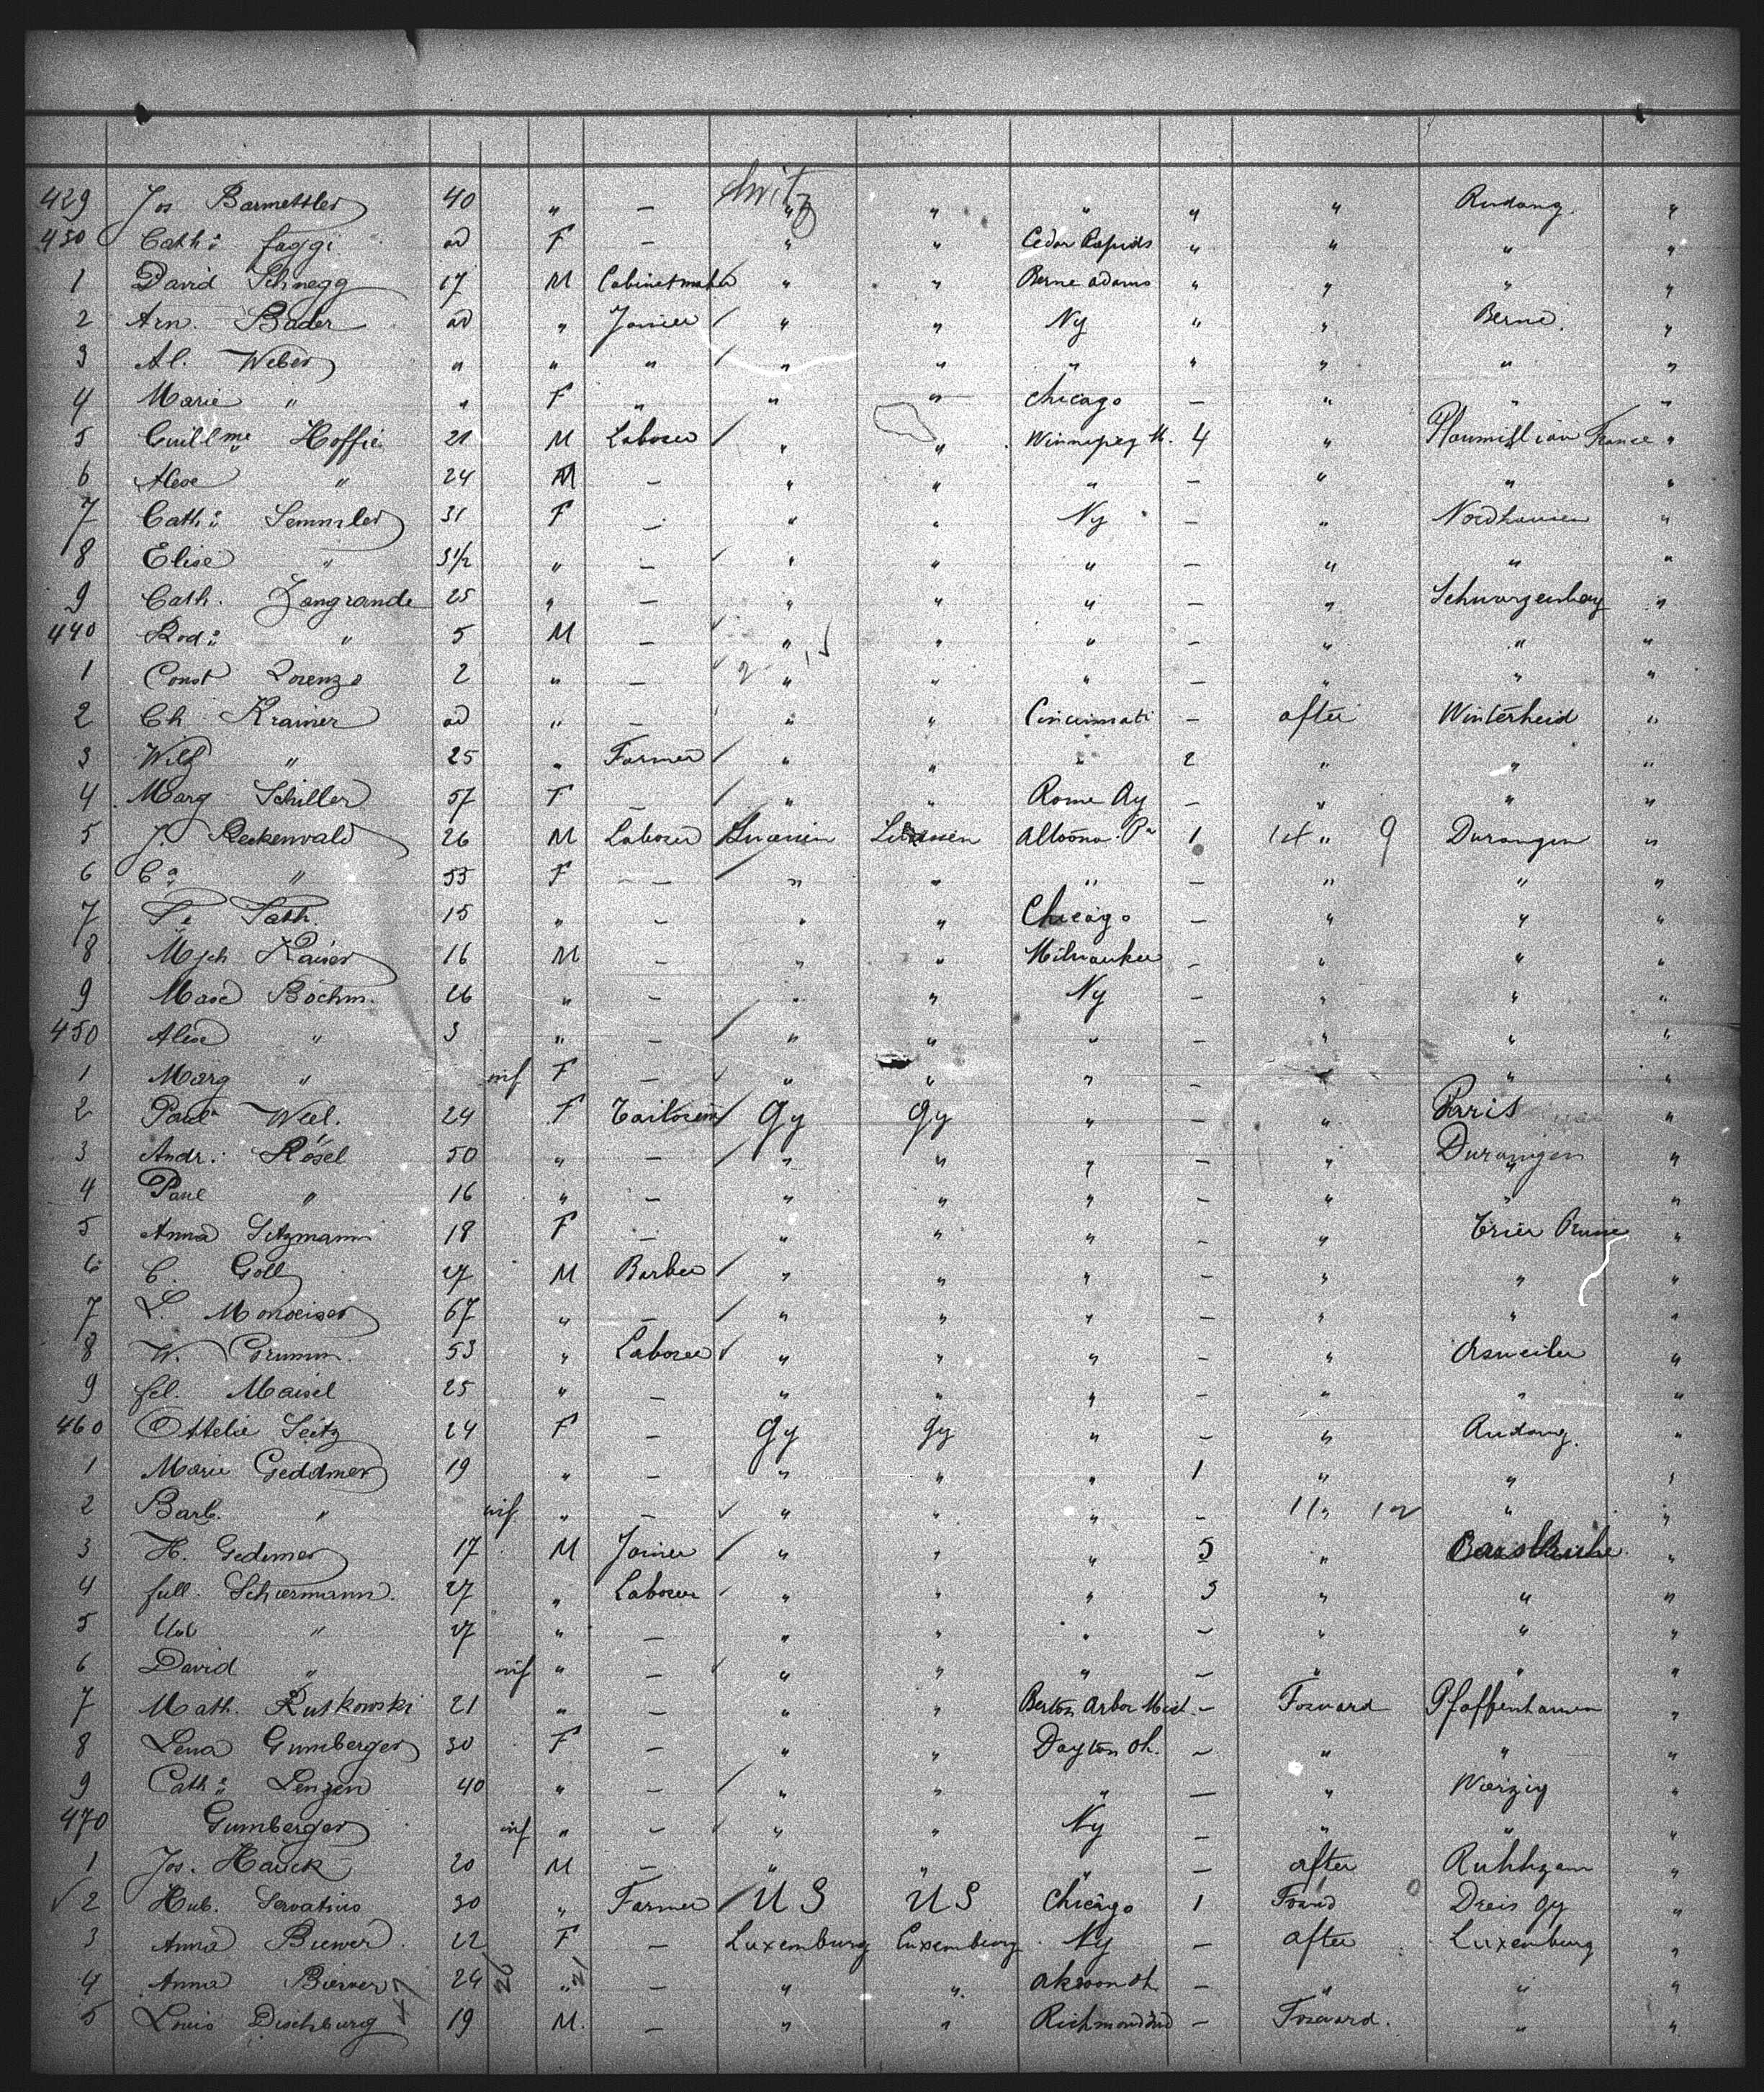 Switz
429 Jos Barmettler 40 " — " " " " " Rudang. "
430 Cath: Faggi ad F — " " Cedar Rapids " " " "
1 David Schnegg 17 M Cabinetmaker " " Berne Adams " " " "
2 Arn. Bader ad " Joiner " " Ny " " Berne. "
3 Al. Weber " " " " " " " " " "
4 Marie " " F " " " Chicago — " " "
5 Guillme Hoffie 21 M Laborer " " Winnipeg M. 4 " France "
6 Alex " 24 M — " " " — " " "
7 Cath: Semmler 31 F — " " Ny — " Nordhausen "
8 Elise " 3½ " — " " " — " " "
9 Cath. Zangrande 25 " — " " " — " Schwarzenberg "
440 Rod: " 5 M — " " " — " " "
1 Const Lorenzo 2 " — " " " — " " "
2 Ch Krainer ad " — " " Cincinnati — after Winterheid "
3 Wilh " 25 " Farmer " " " 2 " " "
4 Marg Schiller 57 F — " " Rome Ny — " " "
5 J. Reckenwald 26 M Laborer Altoona Pa 1 14 " 9 Durangen "
6 Ca " 53 F — " " " — " " "
7 Fe Fath. 15 " — " " Chicago — " " "
8 Mich Kaiser 16 M — " " Milwaukee — " " "
9 Böchm. 26 " — " " Ny — " " "
450 Alex " 3 " — " " " — " " "
1 Marg " inf F — " " " — " " "
2 Paul Weil. 24 F Tailoress Gy Gy " — " Paris "
3 Andr: Rösel 50 " — " " " — " Durangen "
4 Paul " 16 " — " " " — " " "
5 Anna Sitzmann 18 F — " " " — " Trier "
6 C. Goll 27 M Barber " " " — " " "
7 L. Monseiser 67 " — " " " — " " "
8 W. Grumm. 53 " Laborer " " " — " Asweiler "
9 Fel. Maisel 25 " — " " " — " " "
460 Ottelie Seitz 24 F — Gy Gy " — " Rudang. "
1 Marie Geddmer 19 " — " " " 1 " " "
2 Barb. " inf " — " " " — 11 " 12 " "
3 H. Gedemer 17 M Joiner " " " 5 " Carolsruhe "
4 Schurmann. 27 " Laborer " " " 3 " " "
5 " 27 " — " " " — " " "
6 David " inf " — " " " — " " "
7 Math. Rutkowski 21 " — " " Benton Arbor Mich. — Forward Pfaffenhausen "
8 Lena Gumberger 30 F — " " Dayton Oh. — " " "
9 Cath: Lenzen 40 " — " " " — " Wœrzig "
470 Gumberger inf " — " " Ny — " " "
1 Jos. Hauck 20 M — " " " — after "
2 Hub. Servatius 30 " Farmer U S U S Chicago 1 Forwd Dreis Gy "
3 Anna Biewer 22 F — Luxemburg Luxemburg Ny — after Luxemburg "
4 Anna Biewer 24 26 " 21 — " " Akroon Oh — " " "
5 Louis Dischburg 19 M. — " " Richmond Ind — Forward. " "